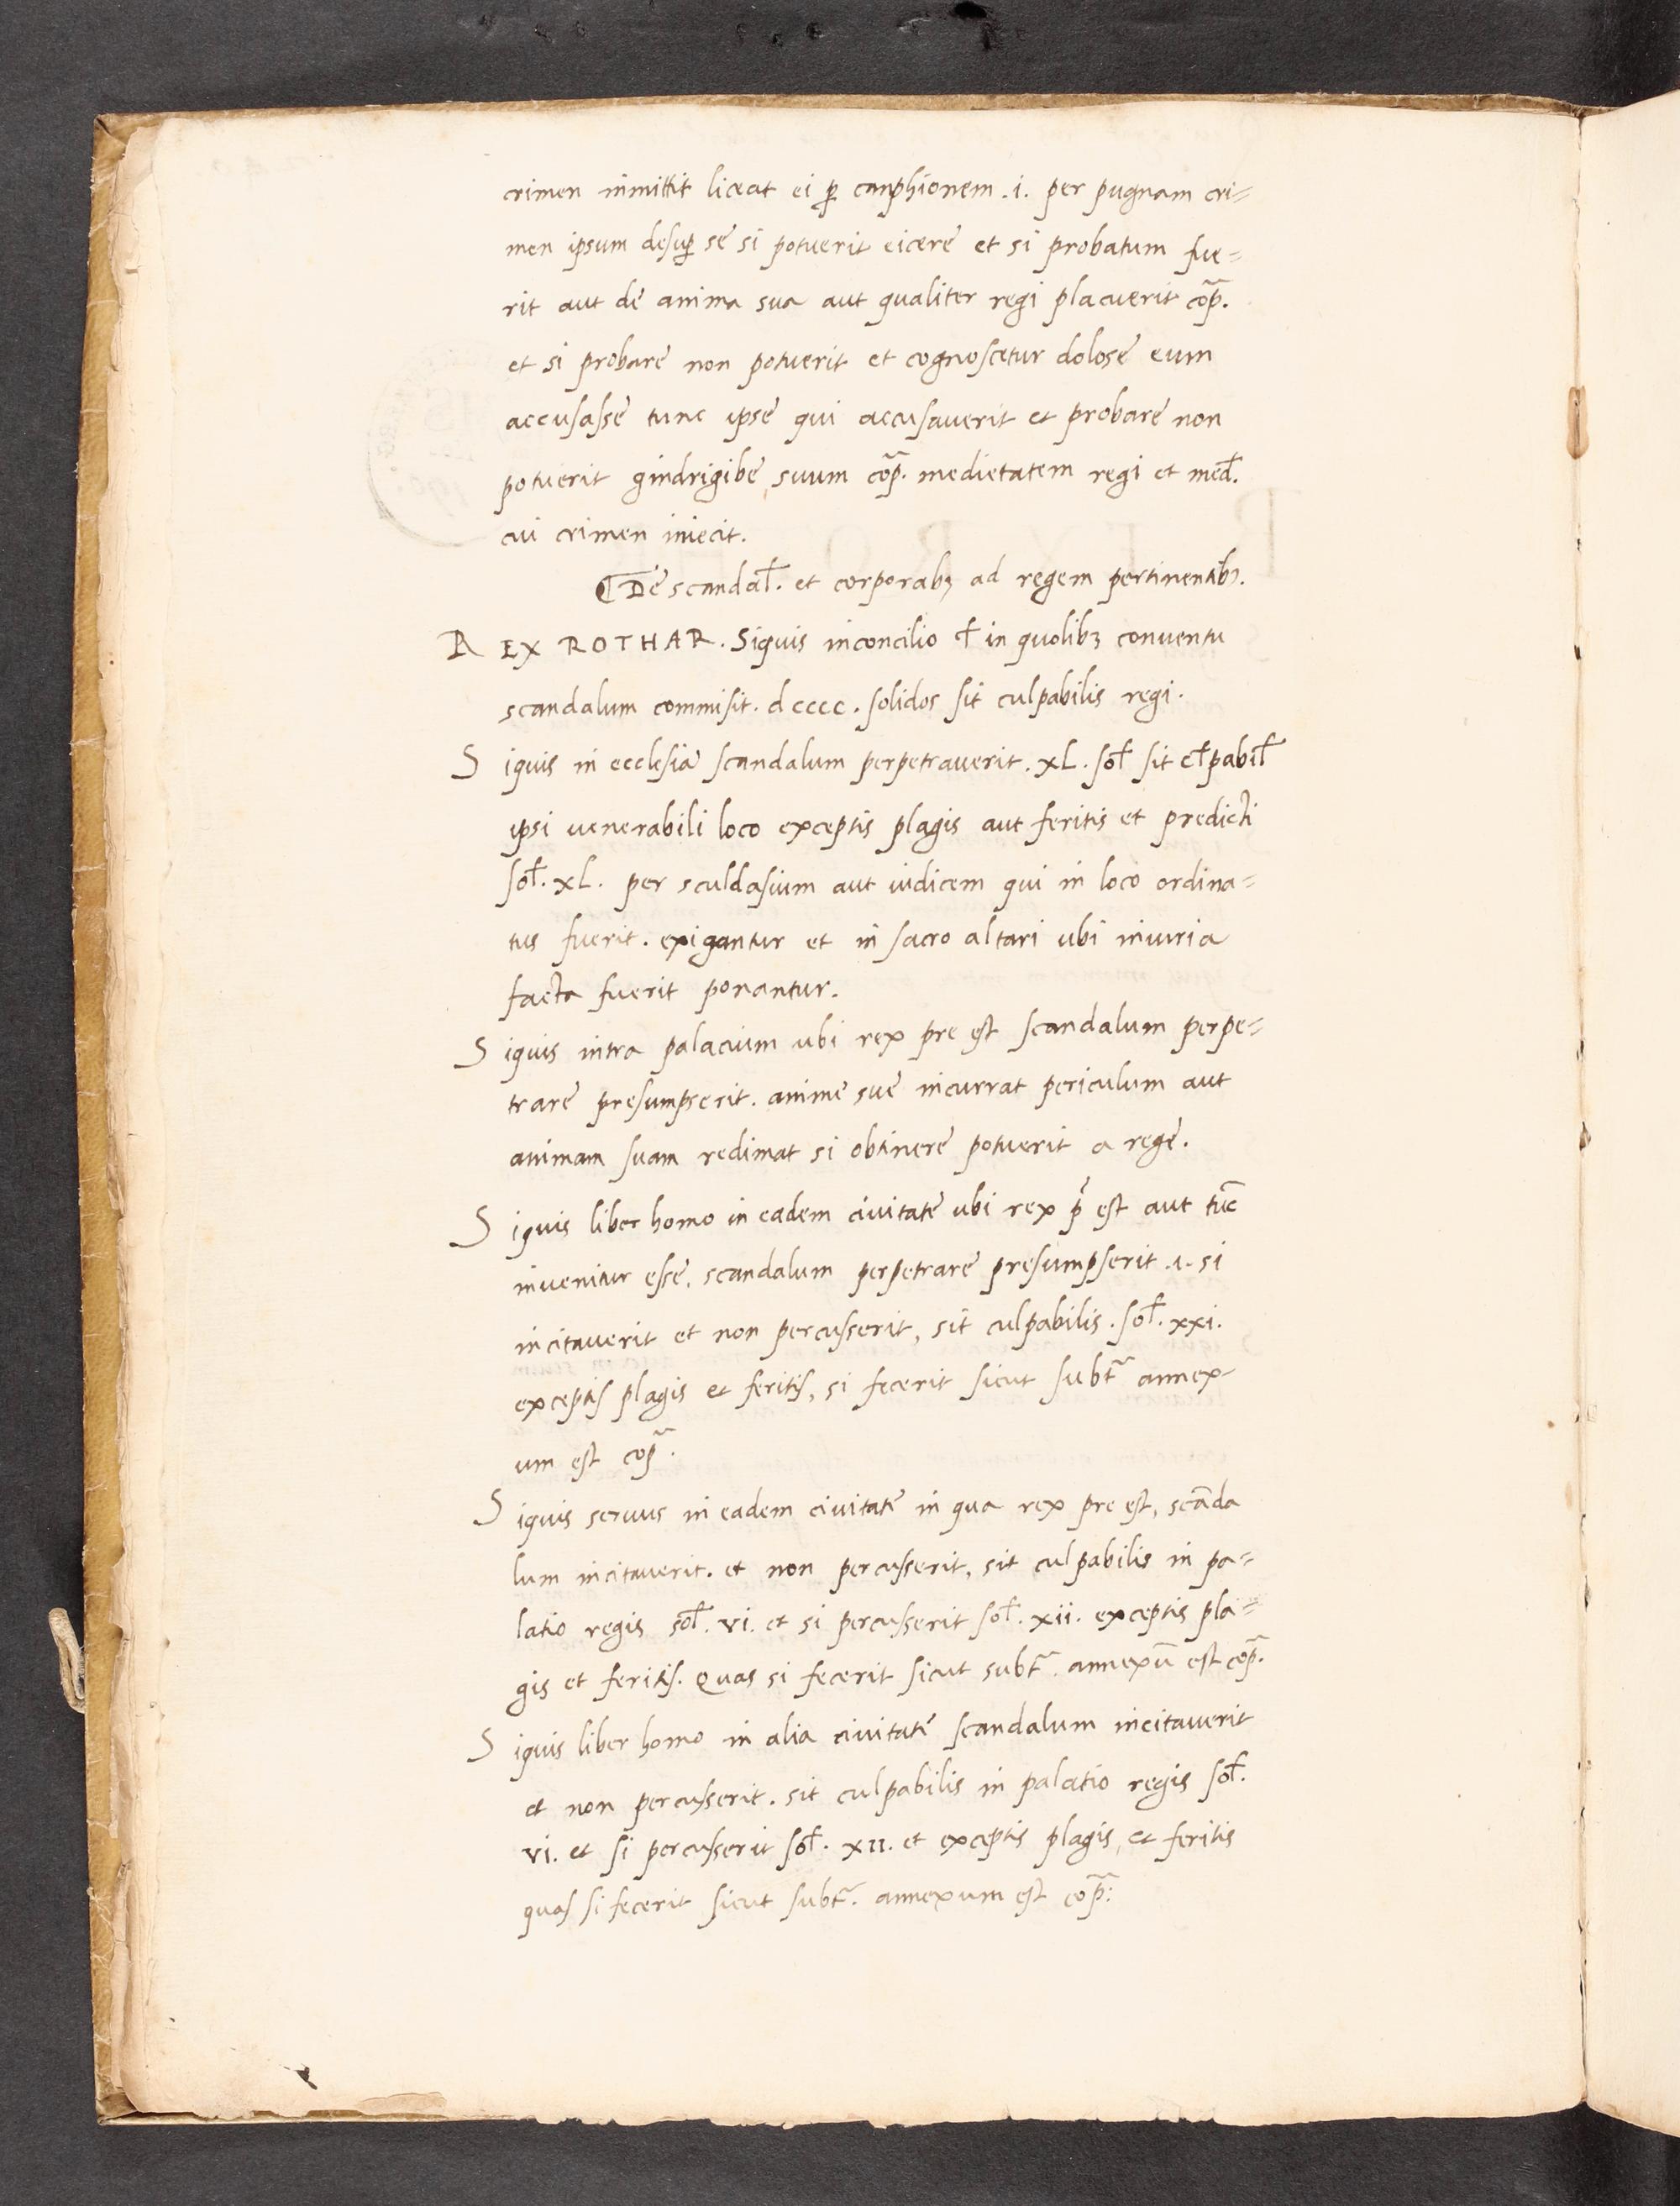 crimen inmittit liceat ei ꝑ canphionem .i. per pugnam cri=
men ipsum desuꝑ se si potuerit eicere et si probatum fue=
rit aut de anima sua aut qualiter regi placuerit cop̃.
et si probare non potuerit et cognoscetur dolose eum
accusasse tunc ipse qui accusaverit et probare non
potuerit gindrigibe suum cop̃. medietatem regi et med̃.
cui crimen iniecit.
De scandal̃. et corporabꝫ ad regem pertinentibꝫ.
REX ROTHAR. Siquis inconcilio ɫ in quolibꝫ conventu
scandalum commisit. dcccc. solidos sit culpabilis regi.
Siquis in ecclesia scandalum perpetraverit. xL. sol̃ sit cl̃pabil̃
ipsi venerabili loco exceptis plagis aut feritis et predicti
sol̃. xL. per sculdasium aut iudicem qui in loco ordina=
tus fuerit. exigantur et in sacro altari ubi iniuria
facta fuerit ponantur.
Siquis intra palacium ubi rex pre est scandalum perpe=
trare presumpserit. anime sue incurrat periculum aut
animam suam redimat si obtinere potuerit a rege.
Siquis liber homo in eadem civitate ubi rex p̃ est aut tuc̃
invenitur esse, scandalum perpetrare presumpserit .i. si
incitaverit et non percusserit, sit culpabilis. sol̃. xxi.
exceptis plagis et feritis, si fecerit sicut subt̃ annex
um est cop̃.
Siquis servus in eadem civitate in qua rex pre est, scãda
lum incitaverit. et non percusserit, sit culpabilis in pa=
latio regis sol̃. vi. et si percusserit sol̃. xii. exceptis pla=
gis et feritis. Quas si fecerit sicut subt̃. annexũ est cop̃.
Siquis liber homo in alia civitate scandalum incitaverit
et non percusserit. sit culpabilis in palatio regis sol̃.
vi. et si percusserit sol̃. xii. et exceptis plagis, et feritis
quas si fecerit sicut subt̃. annexum est cop̃: